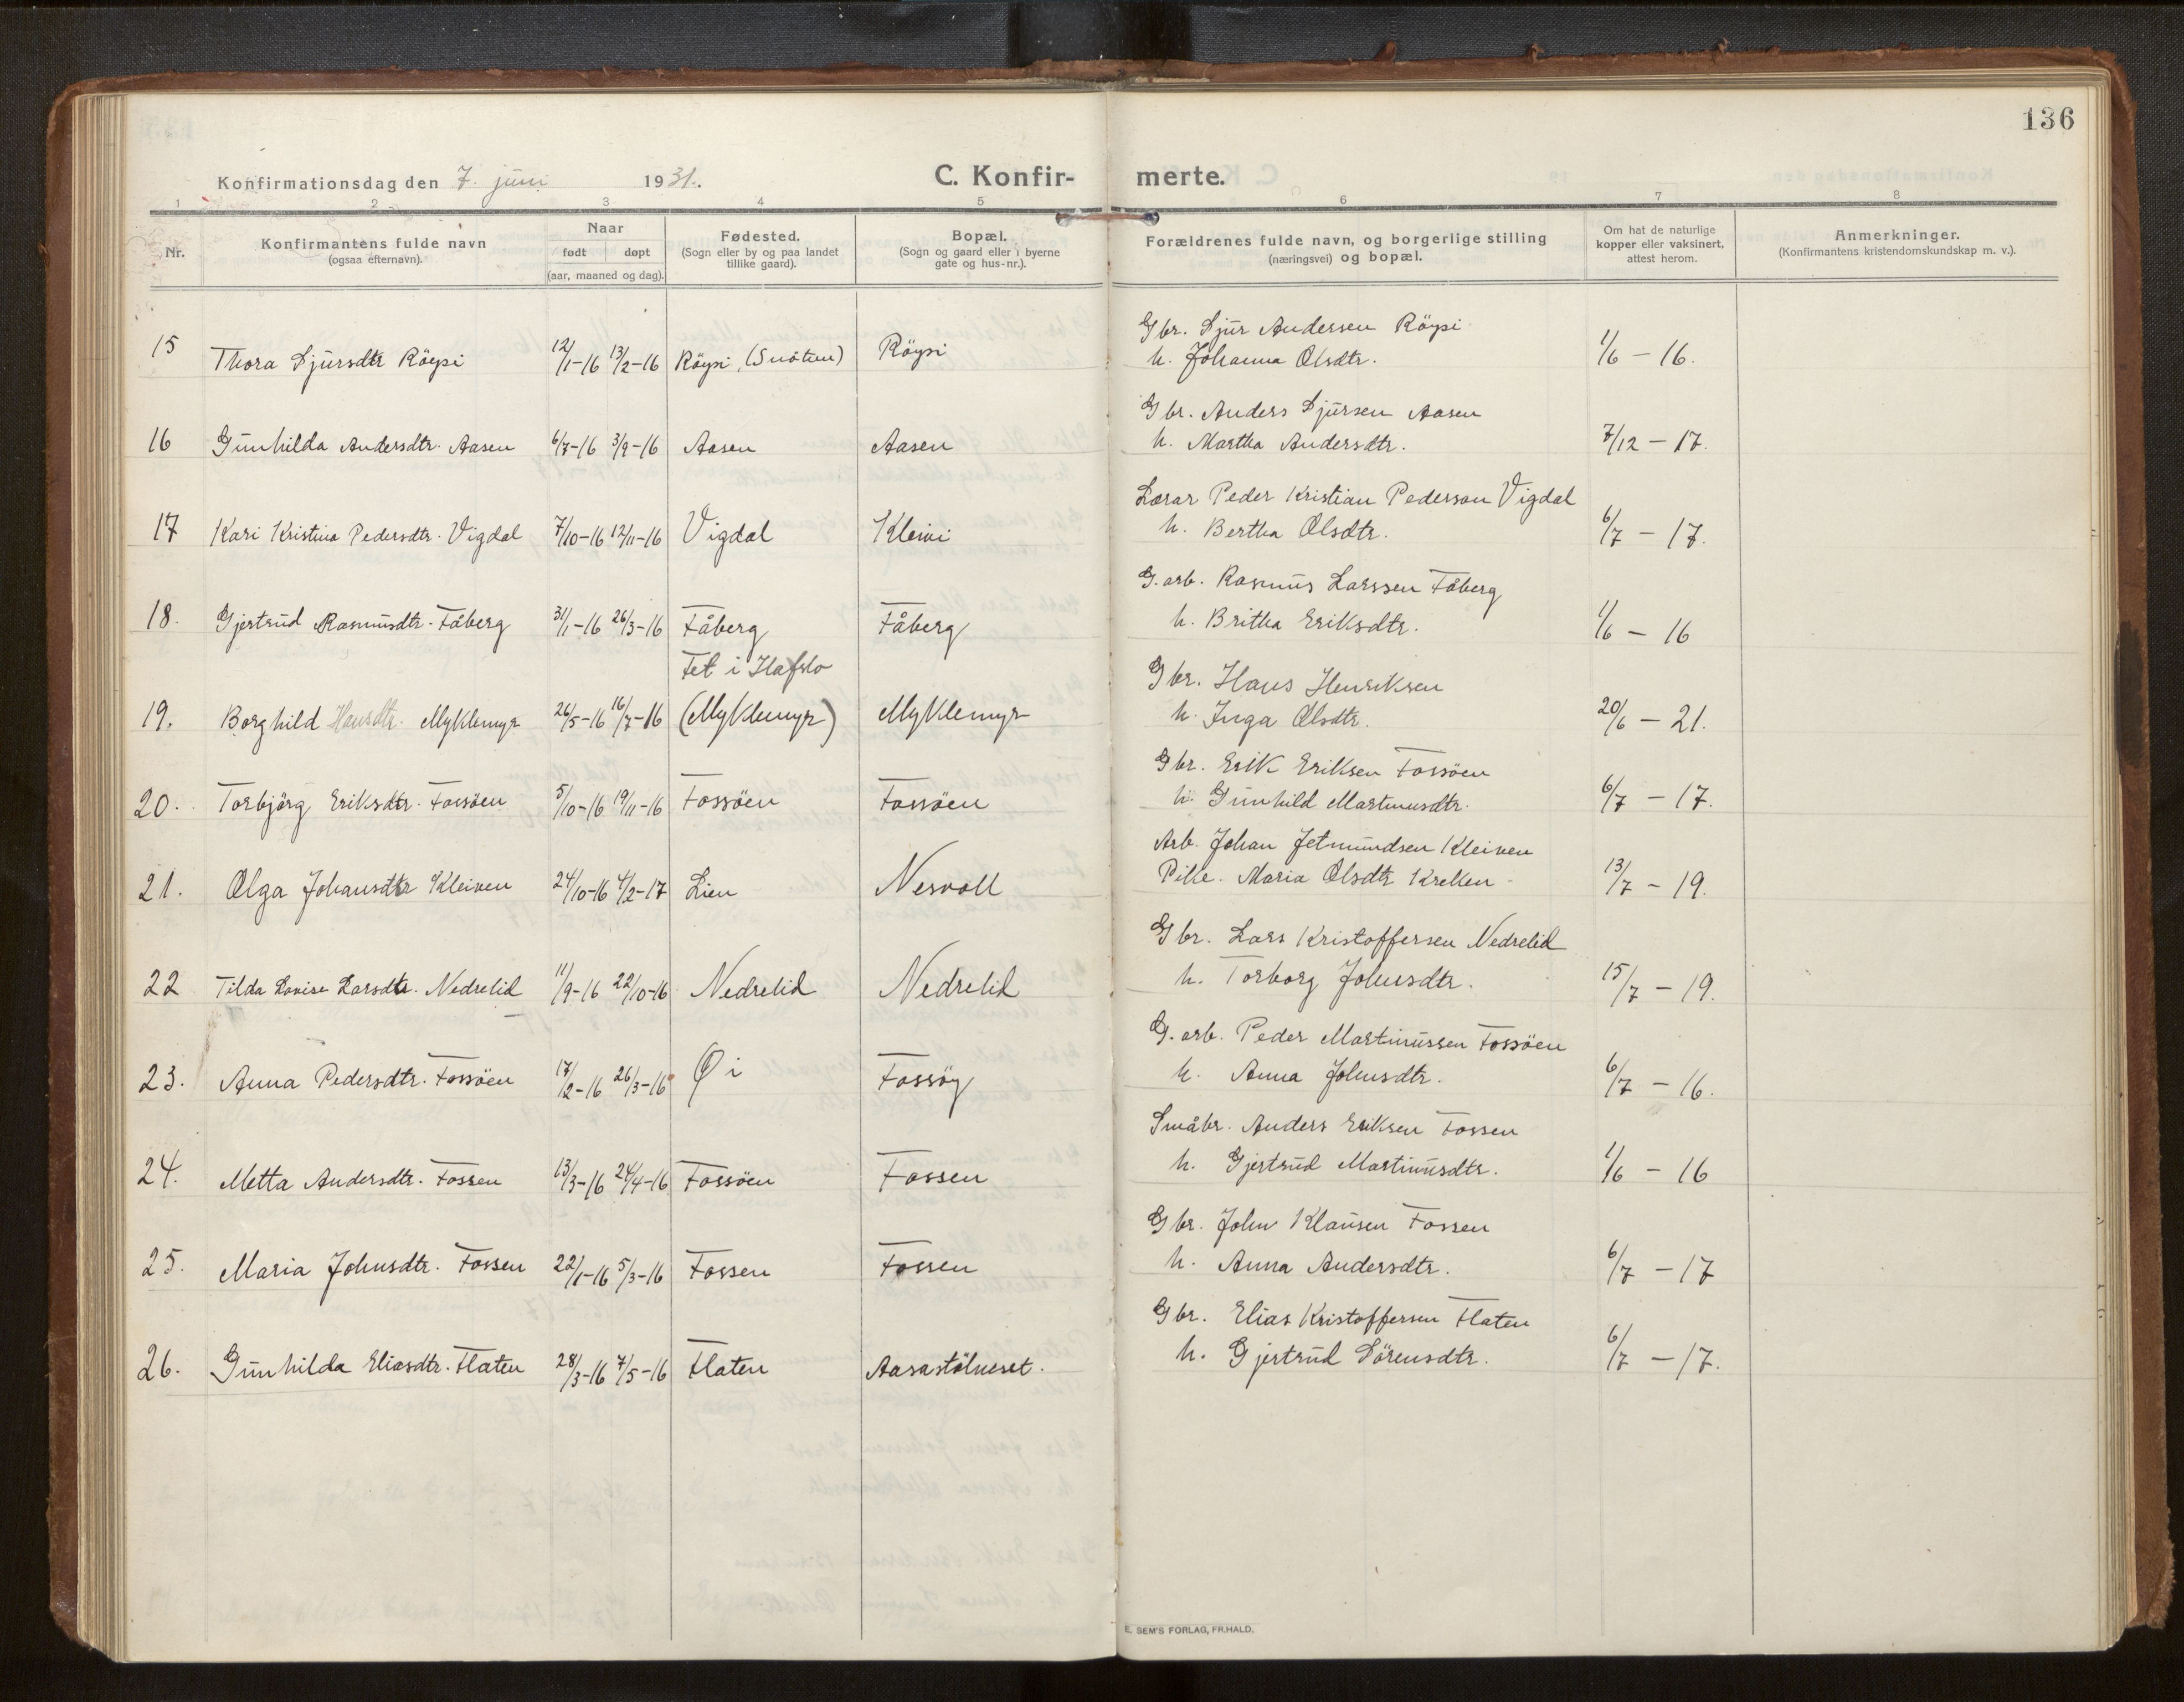 136
Konfirmationsdag den 7. juni 1931.
C. Konfir-
merte.
1 2 3 4 5 6 7 8
Nr.
Konfirmantens fulde navn
(ogsaa efternavn).
Naar
født døpt
(aar, maaned og dag).
Fødested.
(Sogn eller by og paa landet
tillike gaard).
Bopæl.
(Sogn og gaard eller i byerne
gate og hus-nr.).
Forældrenes fulde navn, og borgerlige stilling
(næringsvei) og bopæl.
Om hat de naturlige
kopper eller vaksinert,
attest herom.
Anmerkninger.
(Konfirmantens kristendomskundskap m. v.).
Gbr. Sjur Andersen Röysi
15 Thora Sjursdtr Röysi 12/1-16 13/2-16 Röysi, Röysi h. Johanna Olsdtr. 1/6 - 16.
Gbr. Anders Sjursen Aasen
16 Gunhilda Andersdtr. Aasen 6/7-16 3/9-16 Aasen Aasen h. Martha Andersdtr. 7/12 - 17.
Lærar Peder Kristian Pederson Vigdal
17 Kari Kristina Pedersdtr. Vigdal 7/10-16 12/11-16 Vigdal Kleivi h. Bertha Olsdtr. 6/7 - 17.
G. arb. Rasmus Larssen Fåberg
18. Gjertrud Rasmusdtr. Fåberg 31/1-16 26/3-16 Fåberg Fåberg h. Britha Eriksdtr. 1/6 - 16
Fet i Hafslo
Gbr. Hans Henriksen
19. Borghild Hansdtr. Myklemyr 26/5-16 16/7-16 (Myklemyr) Myklemyr h. Inga Olsdtr. 20/6 - 21.
Gbr. Erik Eriksen Fossöen
20. Torbjörg Eriksdtr. Fossöen 5/10-16 19/11-16 Fossöen Fossöen h. Gunhild Martinusdtr. 6/7 - 17.
Arb. Johan Jetmundsen Kleiven
21. Olga Johansdtr Kleiven 24/10-16 4/2-17 Lien Nesvoll Pike. Maria Olsdtr Kreken 13/7 - 19.
Gbr. Lars Kristoffersen Nedrelid
22 Tilda Lovise Larsdtr. Nedrelid 11/9-16 22/10-16 Nedrelid Nedrelid h. Torborg Johnsdtr. 15/7 - 19.
G. arb. Peder Martinussen Fossöen
23. Anna Pedersdtr. Fossöen 17/2-16 26/3-16 Øi Fossöy h. Anna Johnsdtr. 6/7 - 16.
Småbr. Anders Eriksen Fossen
24. Metta Andersdtr. Fossen 13/3-16 24/4-16 Fossöen Fossen h. Gjertrud Martinusdtr. 1/6 - 16
Gbr. John Klausen Fossen
25. Maria Johnsdtr. Fossen 22/1-16 5/3-16 Fossen Fossen h. Anna Andersdtr. 6/7 - 17
Gbr. Elias Kristoffersen Flaten
26. Gunhilda Eliasdtr. Flaten 28/3-16 7/5-16 Flaten Aasastölneset. h. Gjertrud Sörensdtr. 6/7 - 17.
E. SEM'S FORLAG, FR.HALD.